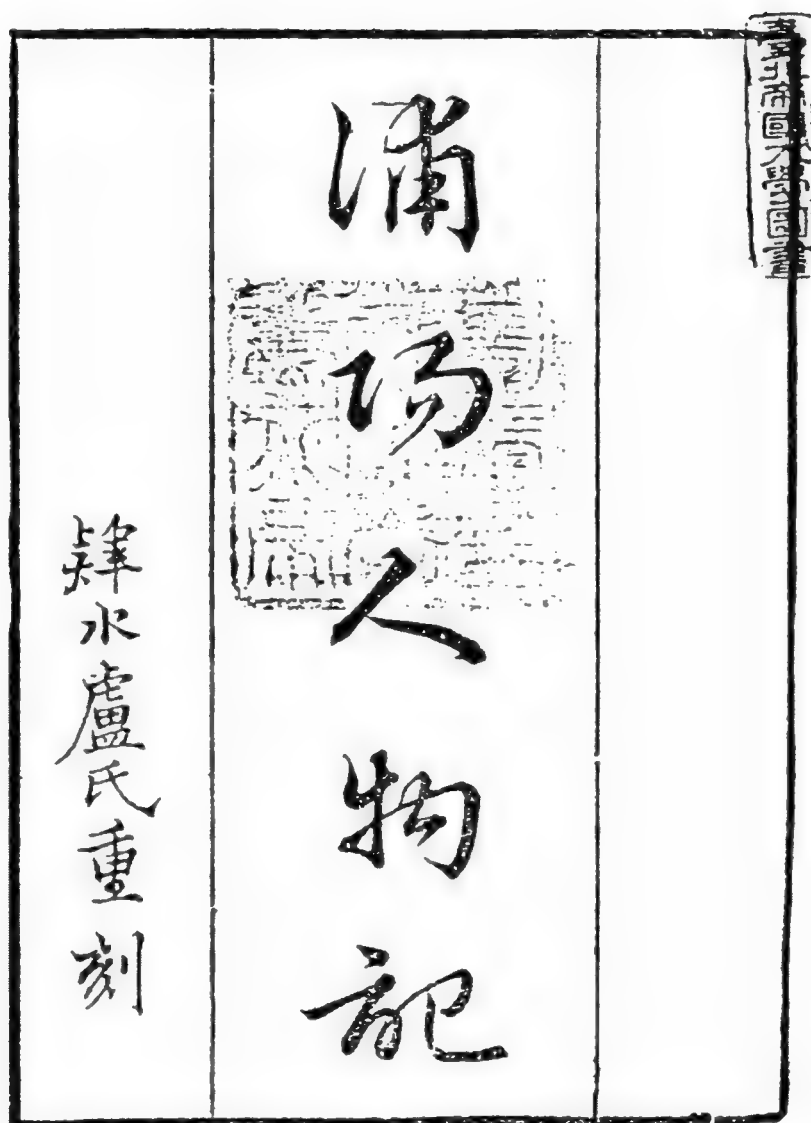 臺北帝國大學圖書
浦陽人物記
肄水盧氏重刻